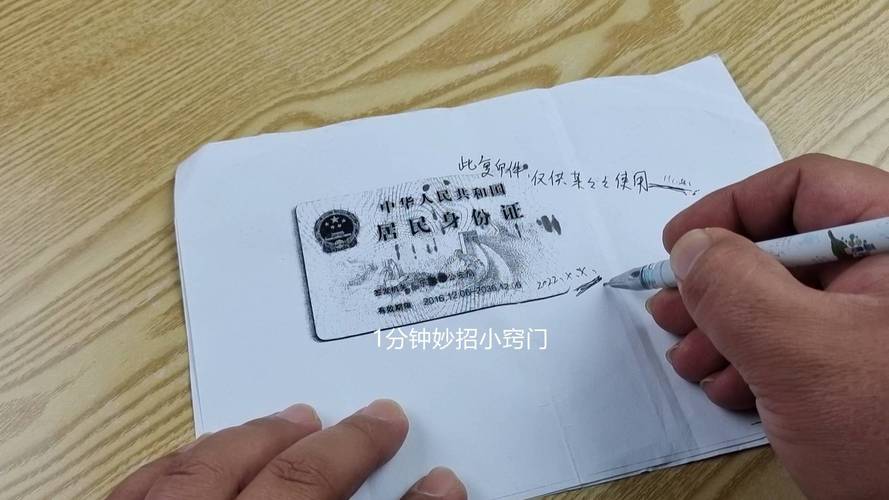 此复印件，仅供某公司使用
中华人民共和国
居民身份证
签发机关 公安局
有效期限 2016.12.06-2036.12.06
2022.X.X.
1分钟妙招小窍门